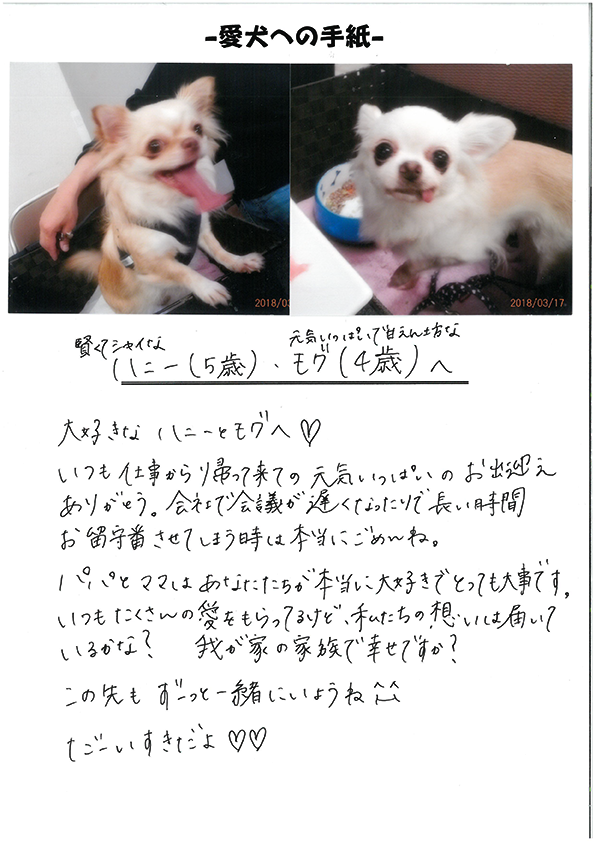 -愛犬への手紙-
2018/03
2018/03/17
賢くてシャイな 元気いっぱいで甘えん坊な
ハニー(5歳)・モグ(4歳)へ
大好きな ハニーとモグへ♡
いつも仕事から帰って来ての元気いっぱいのお出迎え
ありがとう。会社で会議が遅くなったりで長い時間
お留守番させてしまう時は本当にごめんね。
パパとママはあなたたちが本当に大好きでとっても大事です。
いつもたくさんの愛をもらってるけど、私たちの想いは届いて
いるかな? 我が家の家族で幸せですか?
この先も ずーっと一緒にいようね^^
だーいすきだよ♡♡